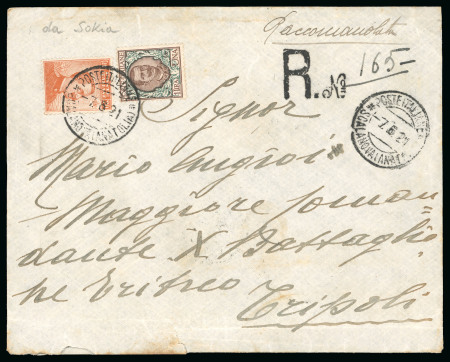 da Sokia
Raccomandata
R. No 165-
POSTE ITALIANE
7.8.21
SCALANOVA (ANATOLIA)
Signor
Mario Angioi
Maggiore Coman=
dante X Battaglio=
ne Eritreo
Tripoli